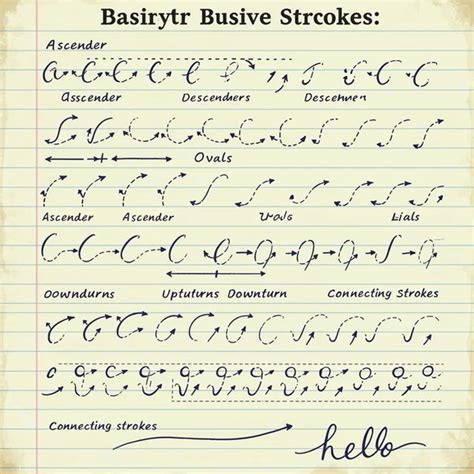 Basirytr Busive Strcokes:
Ascender
Asscender Descendners Descenwen
Ovals
Ascender Ascender Lials
Oowndurns Uptuturns Downturn Connecting Strokes
Connecting strokes
hello